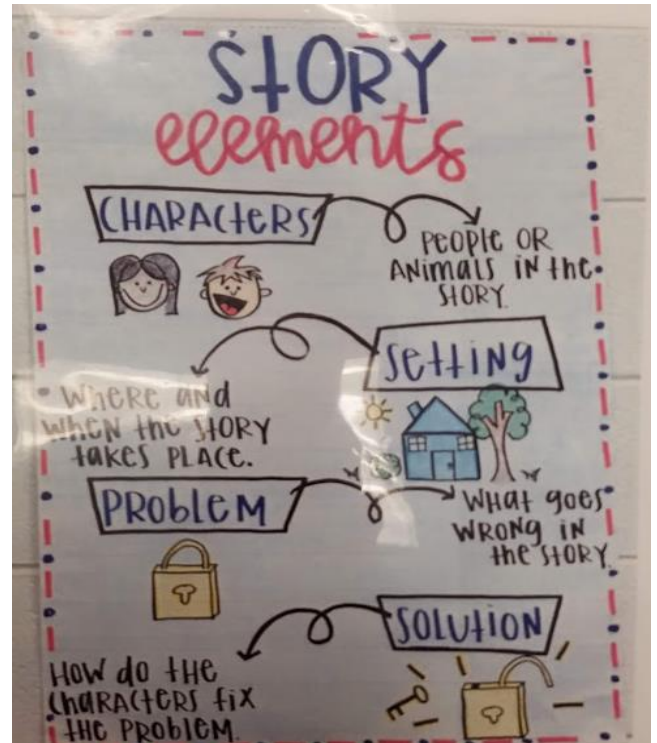 StORY
elements
CHARACtERS
PEOPLE OR
ANimALS iN tHE
StORY.
SEttiNg
WHERE ANd
WHEN tHE StORY
tAKES PLACE.
PRObLEM
WHAt goES
WRONg iN
tHE StORY.
SOLUtiON
HOW do tHE
CHARACtERS fiX
tHE PRObLEM.